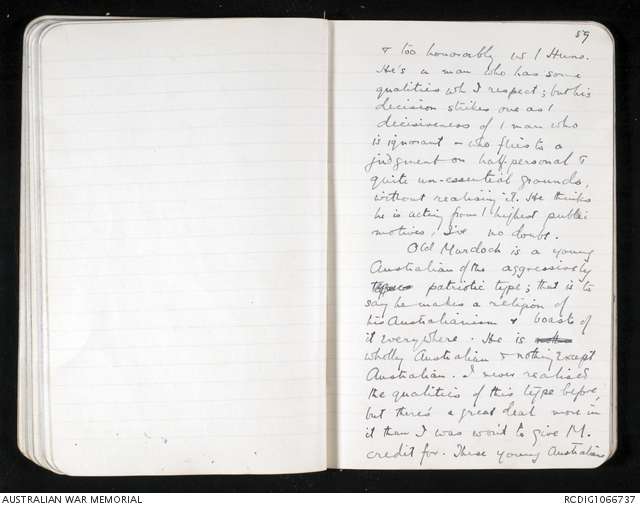 59
& too honorably w / Huns.
He's a man who has some
qualities wh I respect; but his
decision strikes one as /
decisiveness of / man who
is ignorant & who flies to a
judgment on half-personal &
quite un-essential grounds,
without realising it. He thinks
he is acting from / highest public
motives, I've no doubt.
Old Murdoch is a young
Australian of the aggressively
patriotic type; that is to
say he makes a religion of
his Australianism & boasts of
it everywhere. He is
wholly Australian & nothing except
Australian. I never realised
the qualities of this type before,
but there's a great deal more in
it than I was wont to give M.
credit for. These young Australians
AUSTRALIAN WAR MEMORIAL
RCDIG1066737